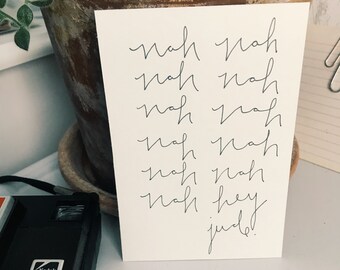 nah nah
nah nah
nah nah
nah nah
nah nah
nah hey
jude.